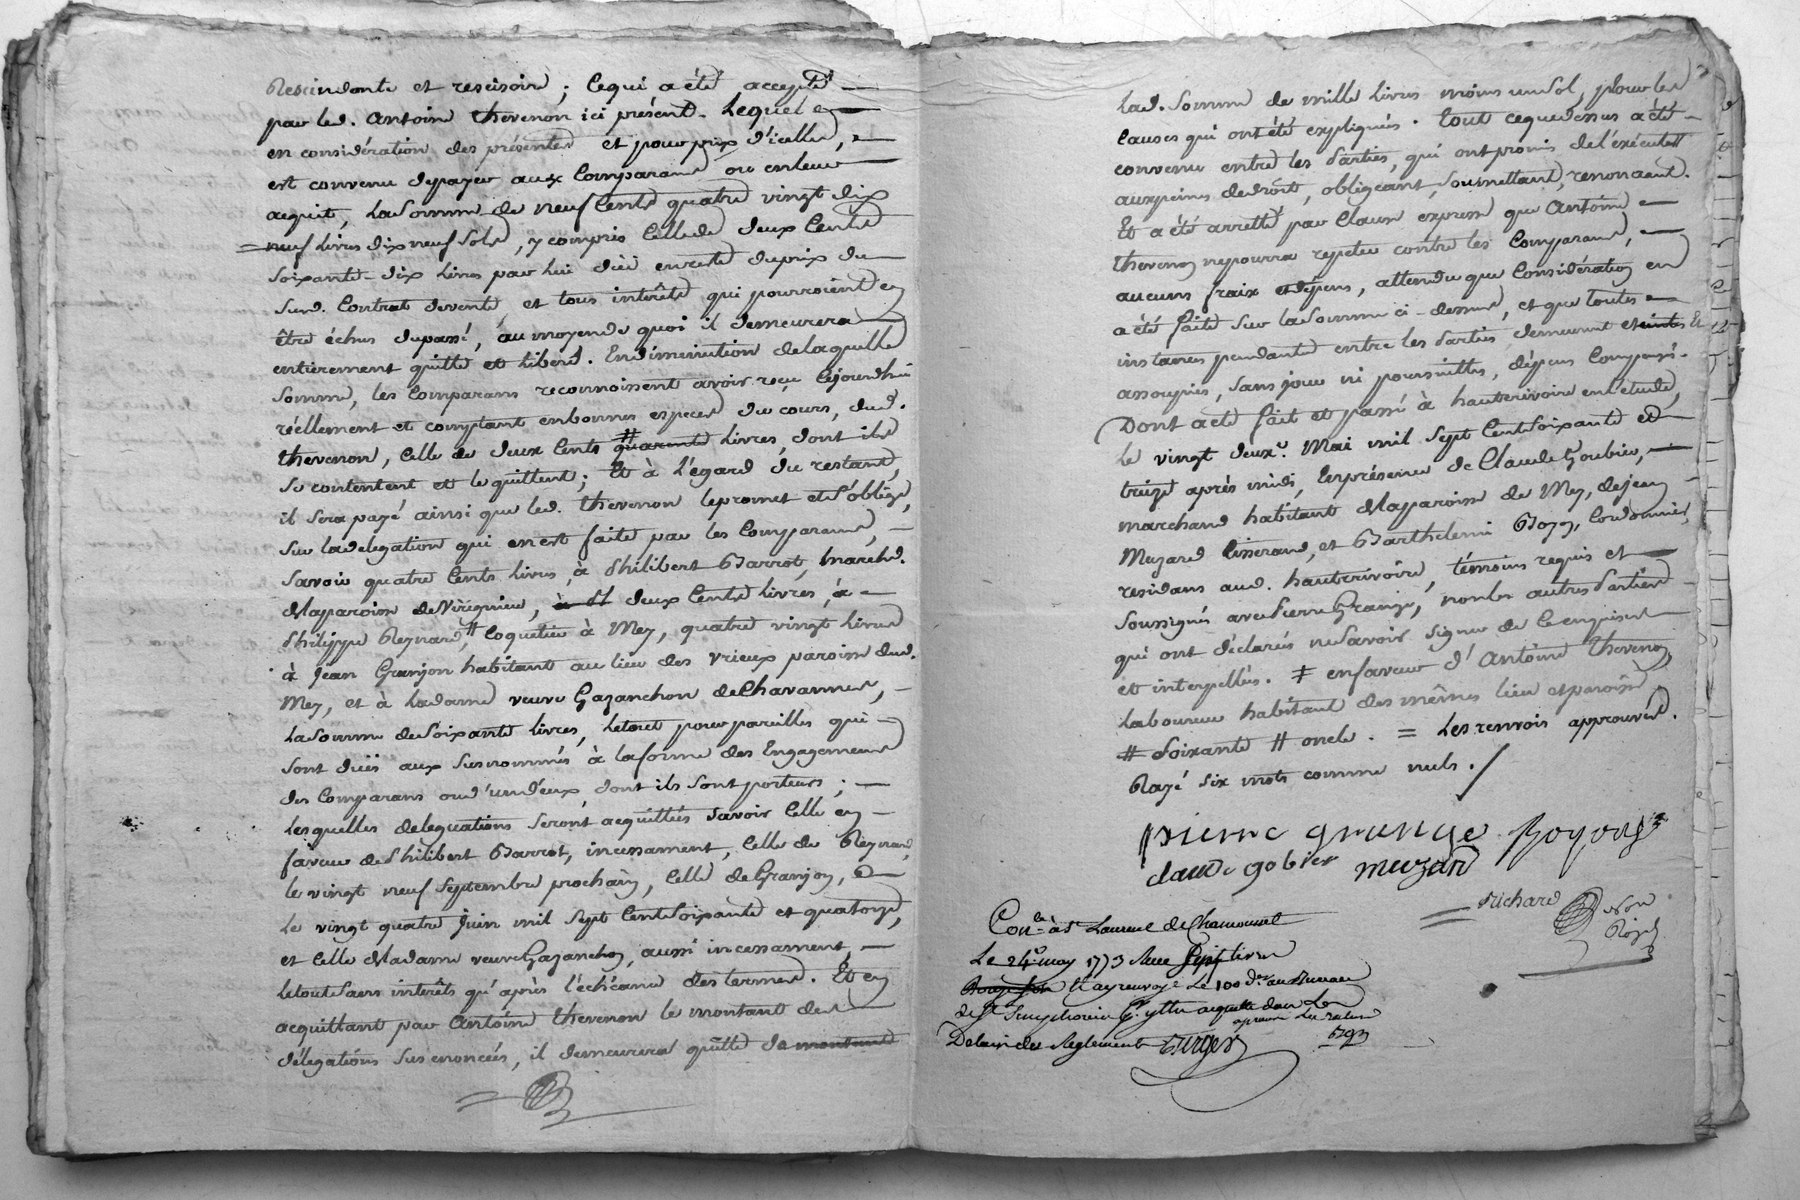 Rescindante et rescisoire ; Cequi a été accepté
par led. Antoine thevenon ici présent. Lequel
en considération des présentes et pour prix d'icelles,
est convenu depayer aux Comparans ou enleur
acquit, lasomme de neuf Cents quatre vingt dix
neuf livres dix neuf sols, y compris Cellede deux Cents
soixante-dix livres par lui düë enreste duprix du
sud. Contrat devente, et tous intérêts qui pourroient en
être échus dupassé, au moyende quoi il demeurera
entierement quitte et libéré. Endiminution delaquelle
somme, les Comparans reconnoissent avoir reçu Cejourdhui
réellement et comptant enbonnes especes du cours, dud.
thevenon, Celle de deux Cents # quarante livres, dont ils
se contentent et le quittent ; Et à l'égard du restant,
il sera payé ainsi que led. thevenon lepromet et s'oblige,
sur ladelegation qui enest faite par les Comparans,
savoir quatre Cents livres, à Philibert Barrot, marchd.
delaparoisse deVirignieu, à Pl deux Cents livres, à
Philippe Reynard, # Coquetier à Mey, quatre vingt livres
à Jean Granjon habitant au lieu des vrieux paroisse dud.
Mey, et à Ladame veuve Gazanchon deChavannes,
lasomme deSoixante livres, letout pour pareilles qui
sont düës aux susnommés à laforme des Engagemens
des Comparans oud'undeux dont ils sont porteurs ;
Lesquelles delequations seront acquittées savoir Celle en
faveur dePhilibert Barrot, incessament, Celle de Reynard,
le vingt neuf septembre prochain, Celle deGranjon,
le vingt quatre Juin mil sept Centsoixante et quatorze,
et Celle deMadame veuveGazanchon, aussi incessament,
letoutsans intérêts qu'après l'échéance des termes. Et en
acquittant par Antoine thevenon le montant des
délégations susenoncées, il demeurera quitte de montant
Lad. somme de mille livres moins un sol, pour les
Causes qui ont été expliquées. tout cequedessus a été
convenu entre les Parties, qui ont promis del'exécuter
auxpeines dedroit, obligeant, soumettant, renonçant.
Et a été arretté par Clause expresse que Antoine
thevenon nepourra repeter contre les Comparans,
aucuns fraix et dépens, attendu que Considération en
a été faite sur lasomme ci-dessus, et que toutes
instances pendantes entre les Parties demeurent eteintes Et
assoupies, sans jour ni poursuittes, dépens Compensés.
Dont acte fait et passé à hauterivoire en l'étude,
Le vingt deuxe. Mai mil sept Centsoixante et
treize après midi, Enprésence de Claude Goubier,
marchand habitant delaparoisse de Mey, dejean
Muzard tisserand, et Barthelemi Boyon, Cordonnier,
residans aud. hauterivoire, témoins requis et
soussignés avecPierreGrange, nonles autresParties
qui ont déclarés nesavoir signer de Cenquis
et interpellés. ‡ enfaveur d'Antoine thevenon,
laboureur habitant des mêmes lieu etparoisse
# soixante # oncle. = Les renvois approuvés.
Rayé six mots comme nuls. /
pierre grange Boyon
claude gobier muzard
Richard
Con.le à St Laurent de Chamousset
Le 24e may 1773 Reçu Sept livres
de St Simphorien
Delais du Reglement